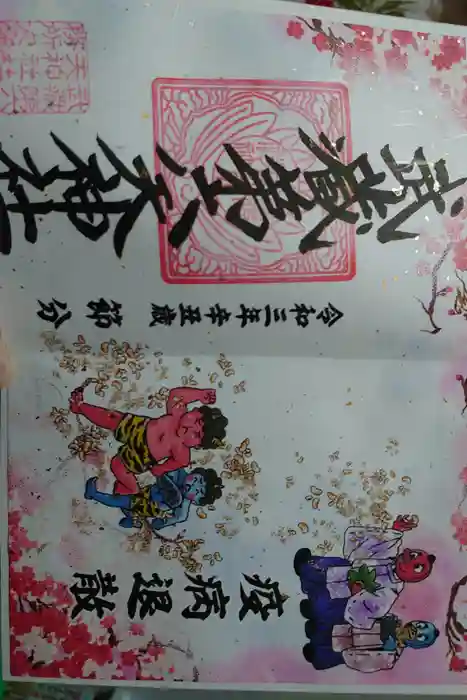 疫病退散
令和三年辛丑歳 節分
武蔵第六天神社